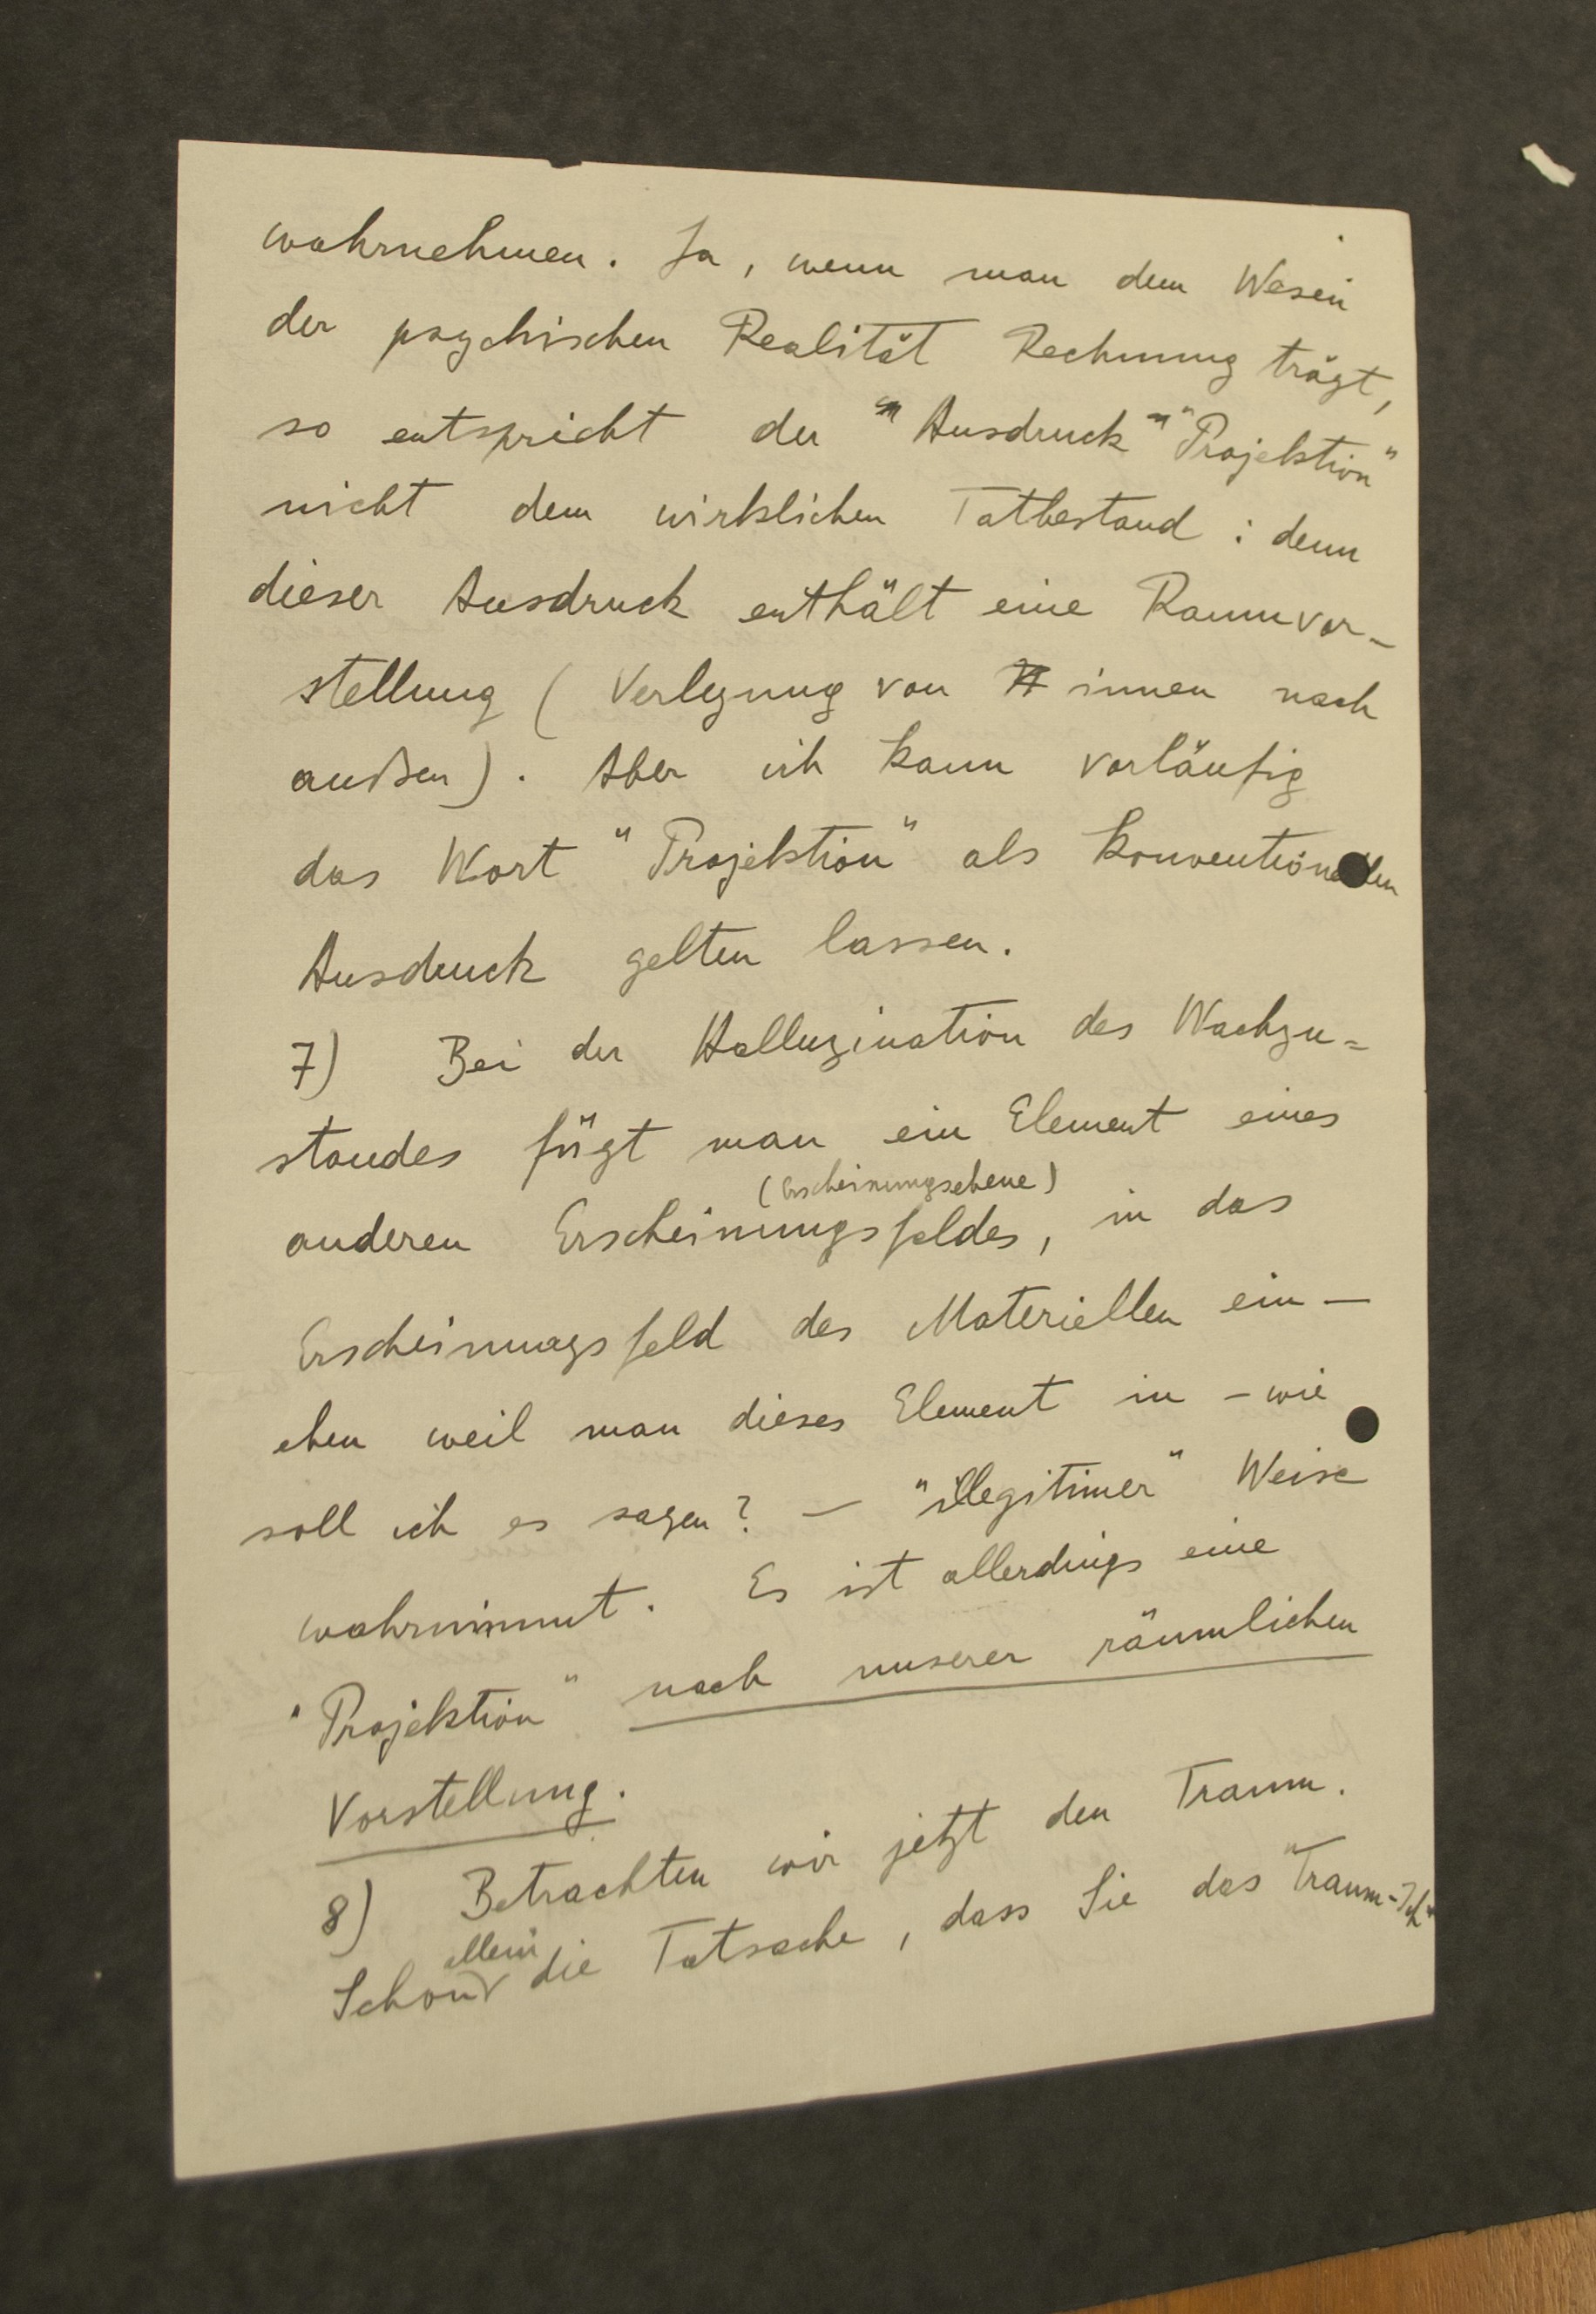 wahrnehmen. Ja, wenn man dem Wesen
der psychischen Realität Rechnung trägt,
so entspricht der Ausdruck "Projektion"
nicht dem wirklichen Tatbestand : denn
dieser Ausdruck enthält eine Raumvor-
stellung (Verlegung von innen nach
außen). Aber ich kann vorläufig
das Wort "Projektion" als konventionellen
Ausdruck gelten lassen.
7) Bei der Halluzination des Wachzu=
standes fügt man ein Element eines
(Erscheinungsebene)
anderen Erscheinungsfeldes, in das
Erscheinungsfeld des Materiellen ein —
eben weil man dieses Element in – wie
soll ich es sagen? — "illegitimer" Weise
wahrnimmt. Es ist allerdings eine
"Projektion" nach unserer räumlichen
Vorstellung.
8) Betrachten wir jetzt den Traum.
allein
Schon die Tatsache, dass Sie das "Traum-Ich"